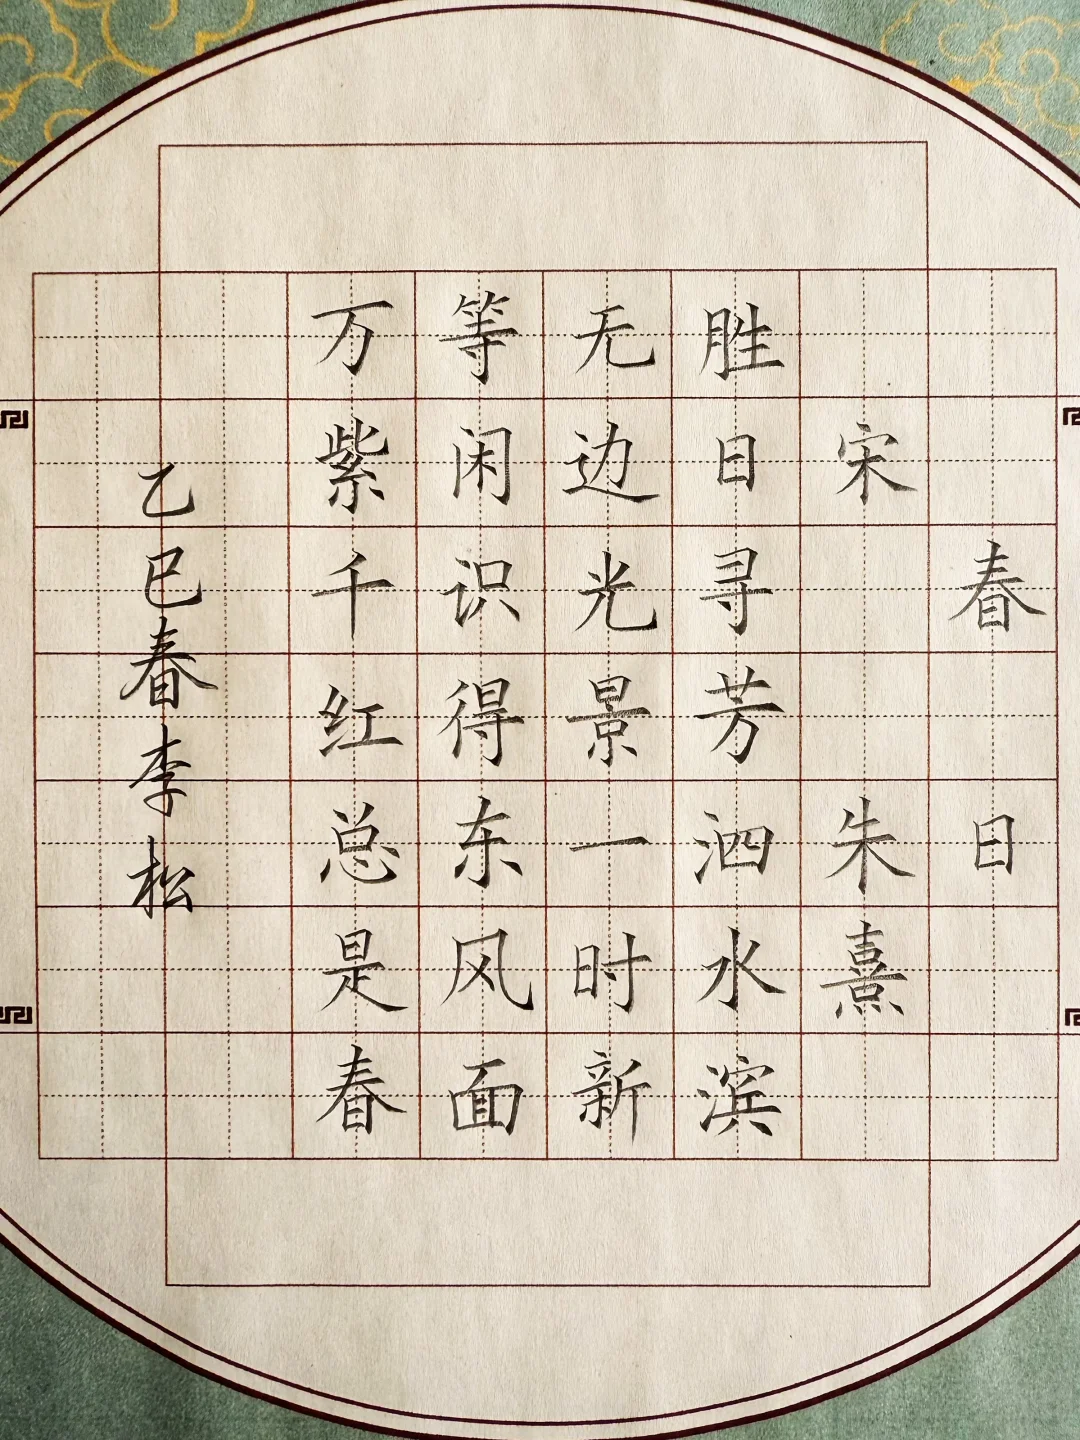 春日
宋 朱熹
胜日寻芳泗水滨
无边光景一时新
等闲识得东风面
万紫千红总是春
乙巳春李松